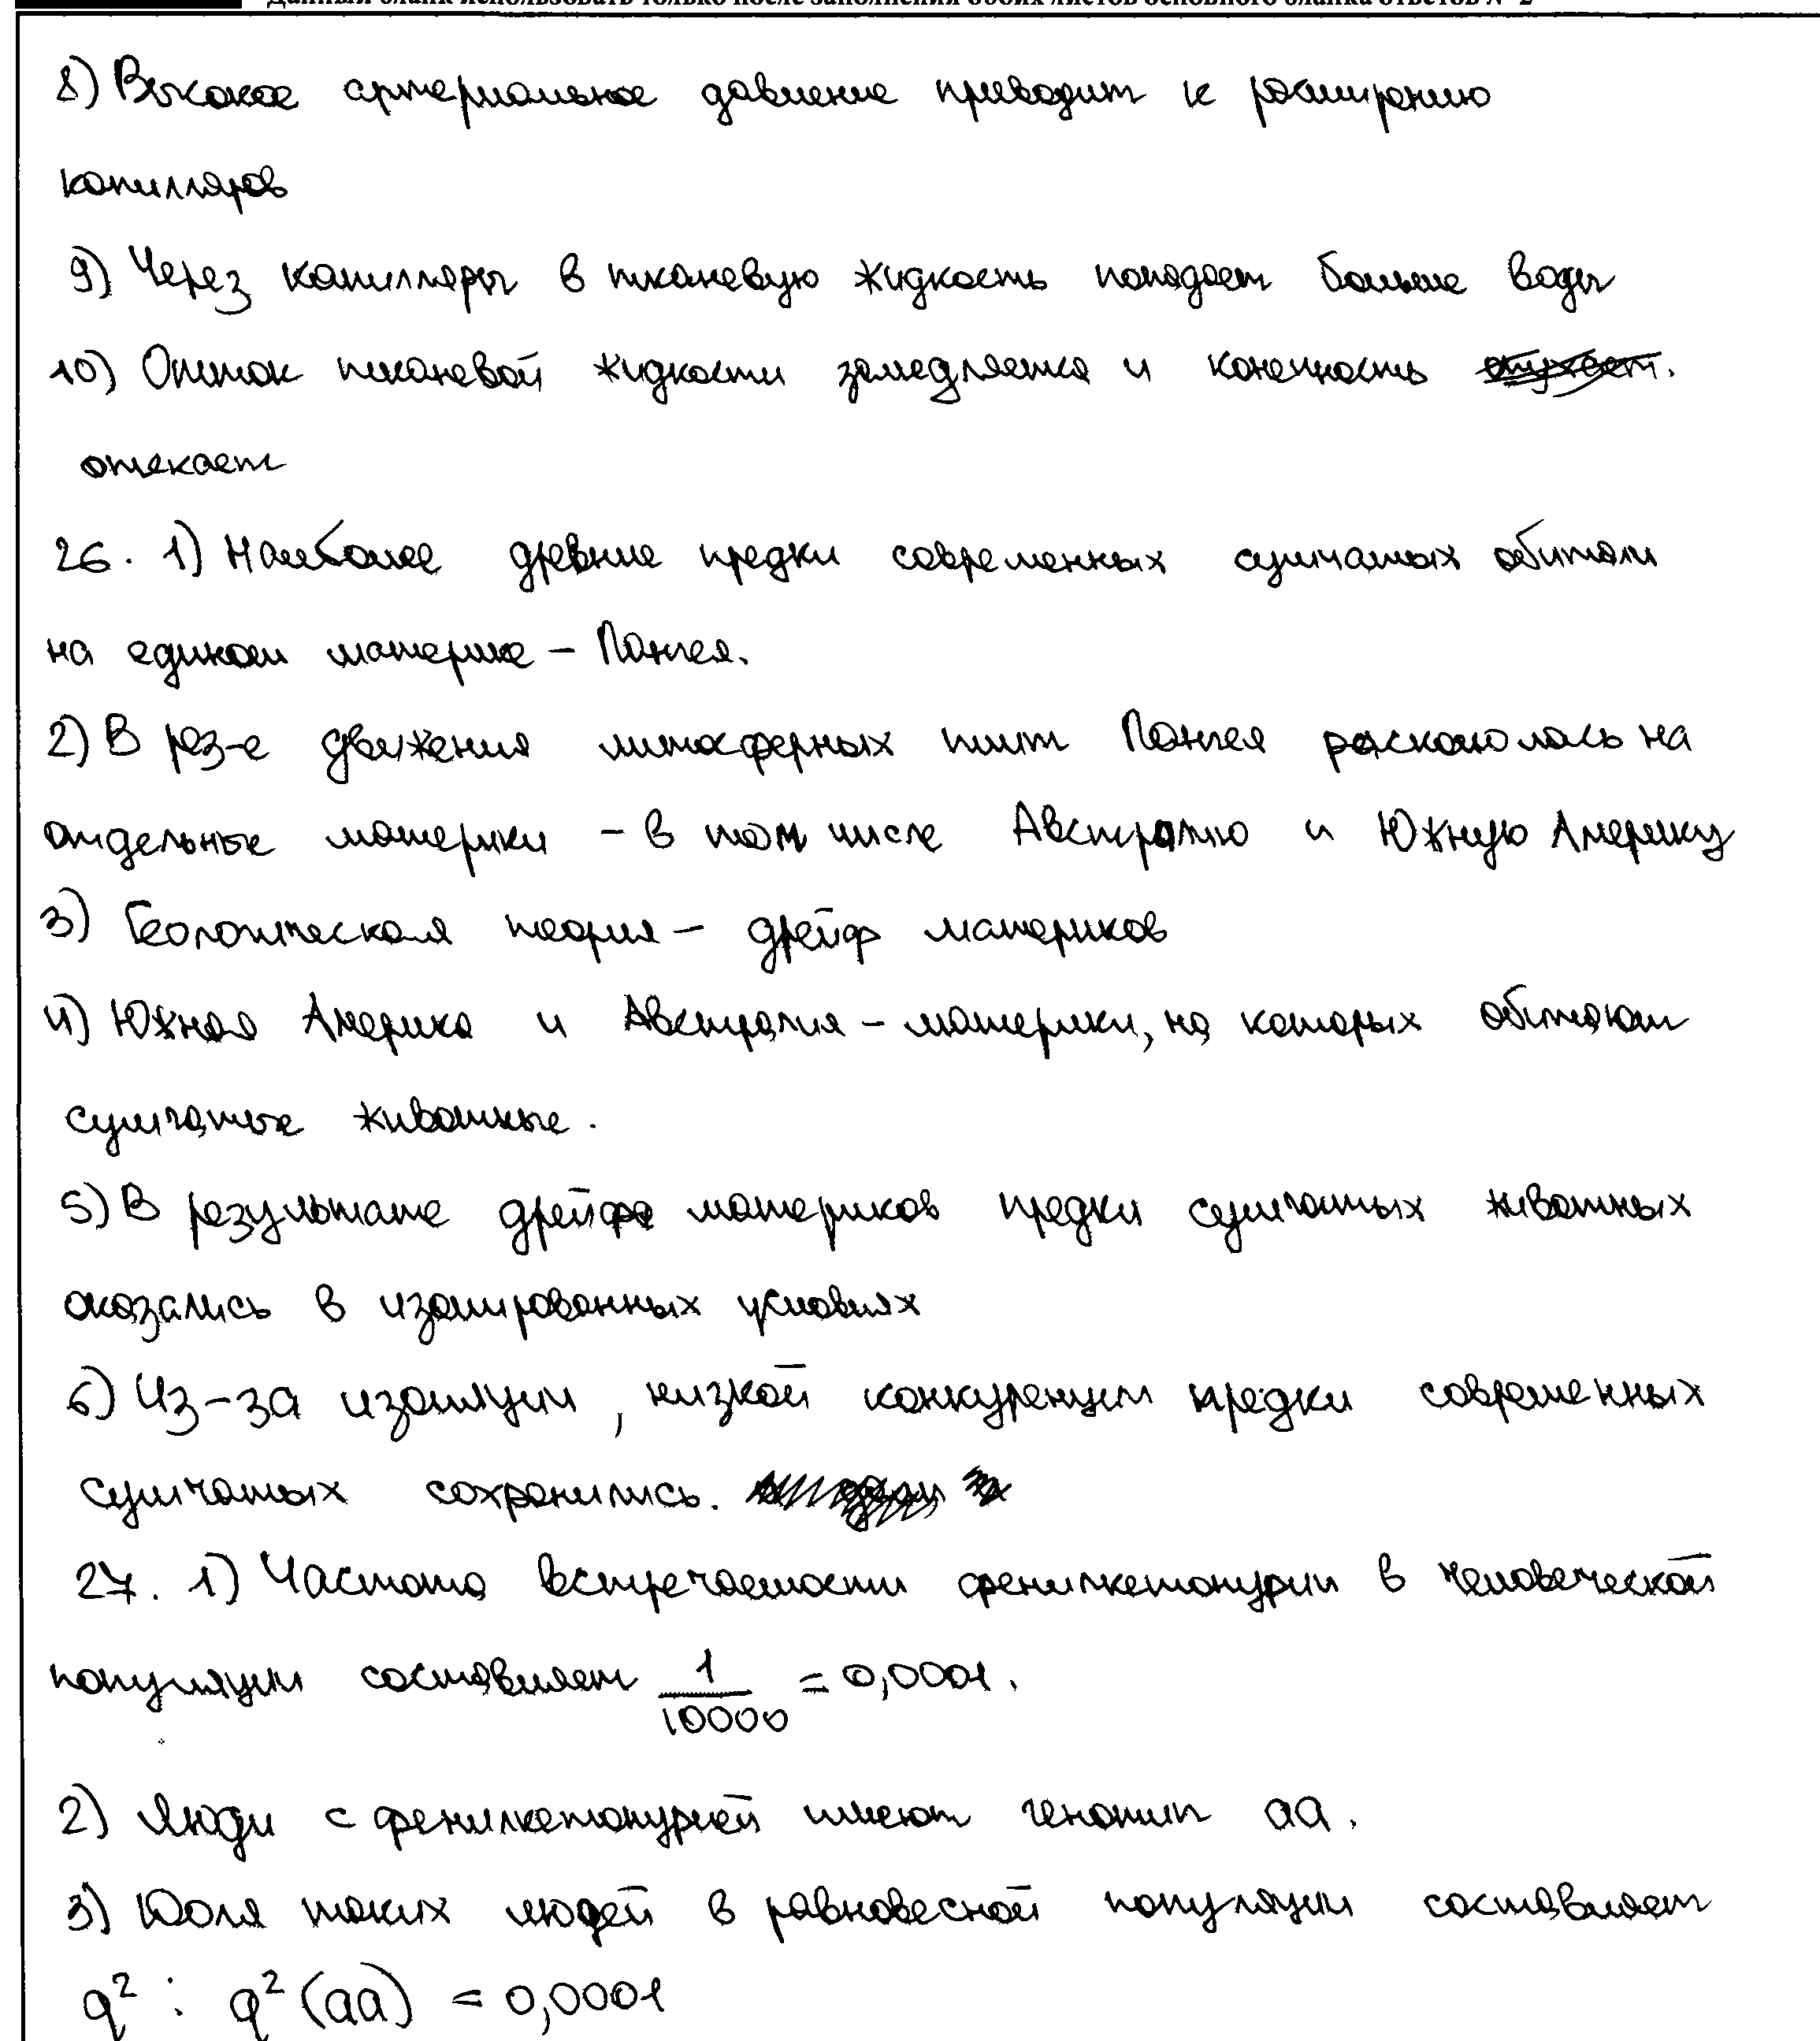 Данный бланк использовать только после заполнения обоих листов основного бланка ответов № 2
8) Высокое артериальное давление приводит к расширению
капилляров
9) Через капилляры в тканевую жидкость попадает больше воды
10) Отток тканевой жидкости замедляется и конечность опухает.
отекает
26. 1) Наиболее древние предки современных сумчатых обитали
на едином материке – Пангея.
2) В рез-е движения литосферных плит Пангея раскололась на
отдельные материки – в том числе Австралию и Южную Америку
3) Геологическая теория – дрейф материков
4) Южная Америка и Австралия – материки, на которых обитают
сумчатые животные.
5) В результате дрейфа материков предки сумчатых животных
оказались в изолированных условиях
6) Из-за изоляции, низкой конкуренции предки современных
сумчатых сохранились.
27. 1) Частота встречаемости фенилкетонурии в человеческой
популяции составляет 1/10000 = 0,0001.
2) Люди с фенилкетонурией имеют генотип aa.
3) Доля таких людей в равновесной популяции составляет
q² : q² (aa) = 0,0001